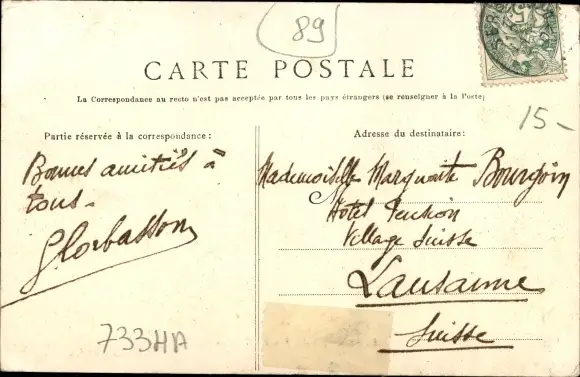 89
CARTE POSTALE
La Correspondance au recto n'est pas acceptée par tous les pays étrangers (se renseigner à la Poste)
15-
Partie réservée à la correspondance:
Bonnes amitiés à
tous-
Adresse du destinataire:
Mademoiselle Marguerite Bourgoin
Hôtel Pension
Village Suisse
Lausanne
Suisse
733HA